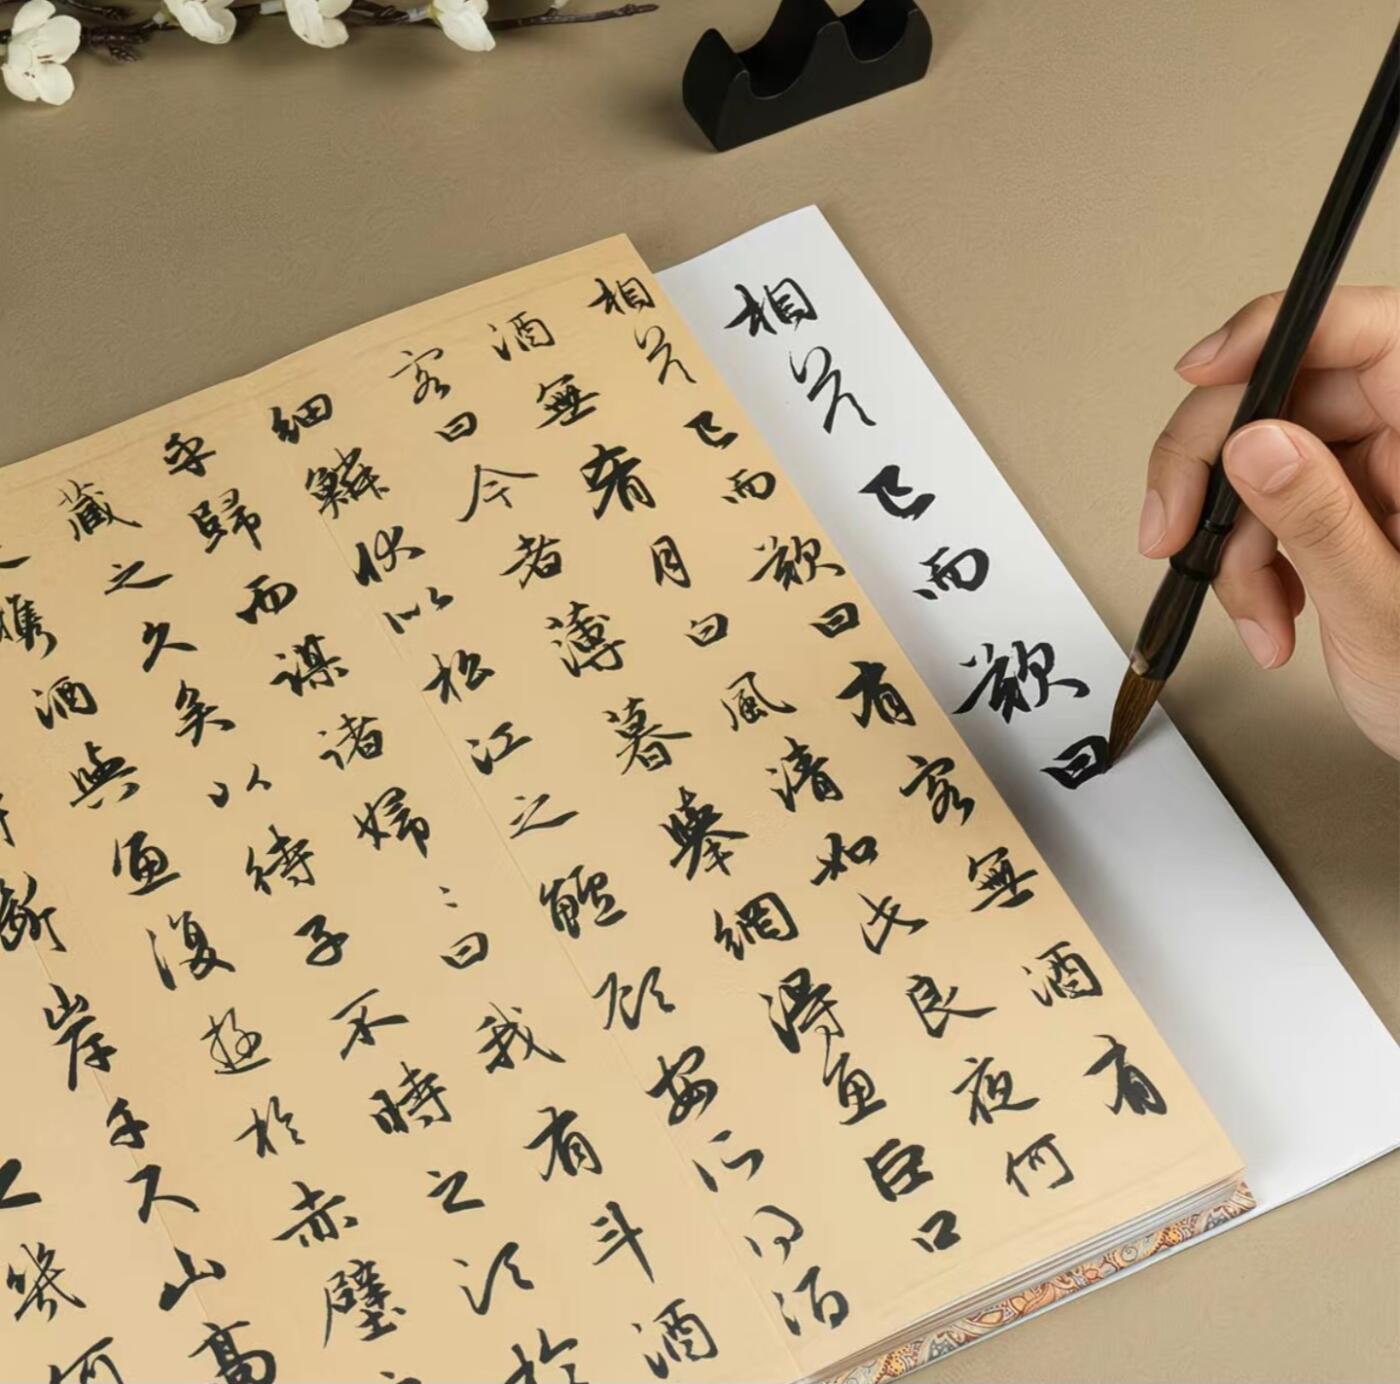 相答已而歎曰
相答已而歎曰有客無酒有
酒無肴月白風清如此良夜何
客曰今者薄暮舉網得魚巨口
細鱗狀似松江之鱸顧安所得酒
乎歸而謀諸婦〻曰我有斗酒
藏之久矣以待子不時之須於
攜酒與魚復遊於赤壁
斷岸千尺山高
幾何